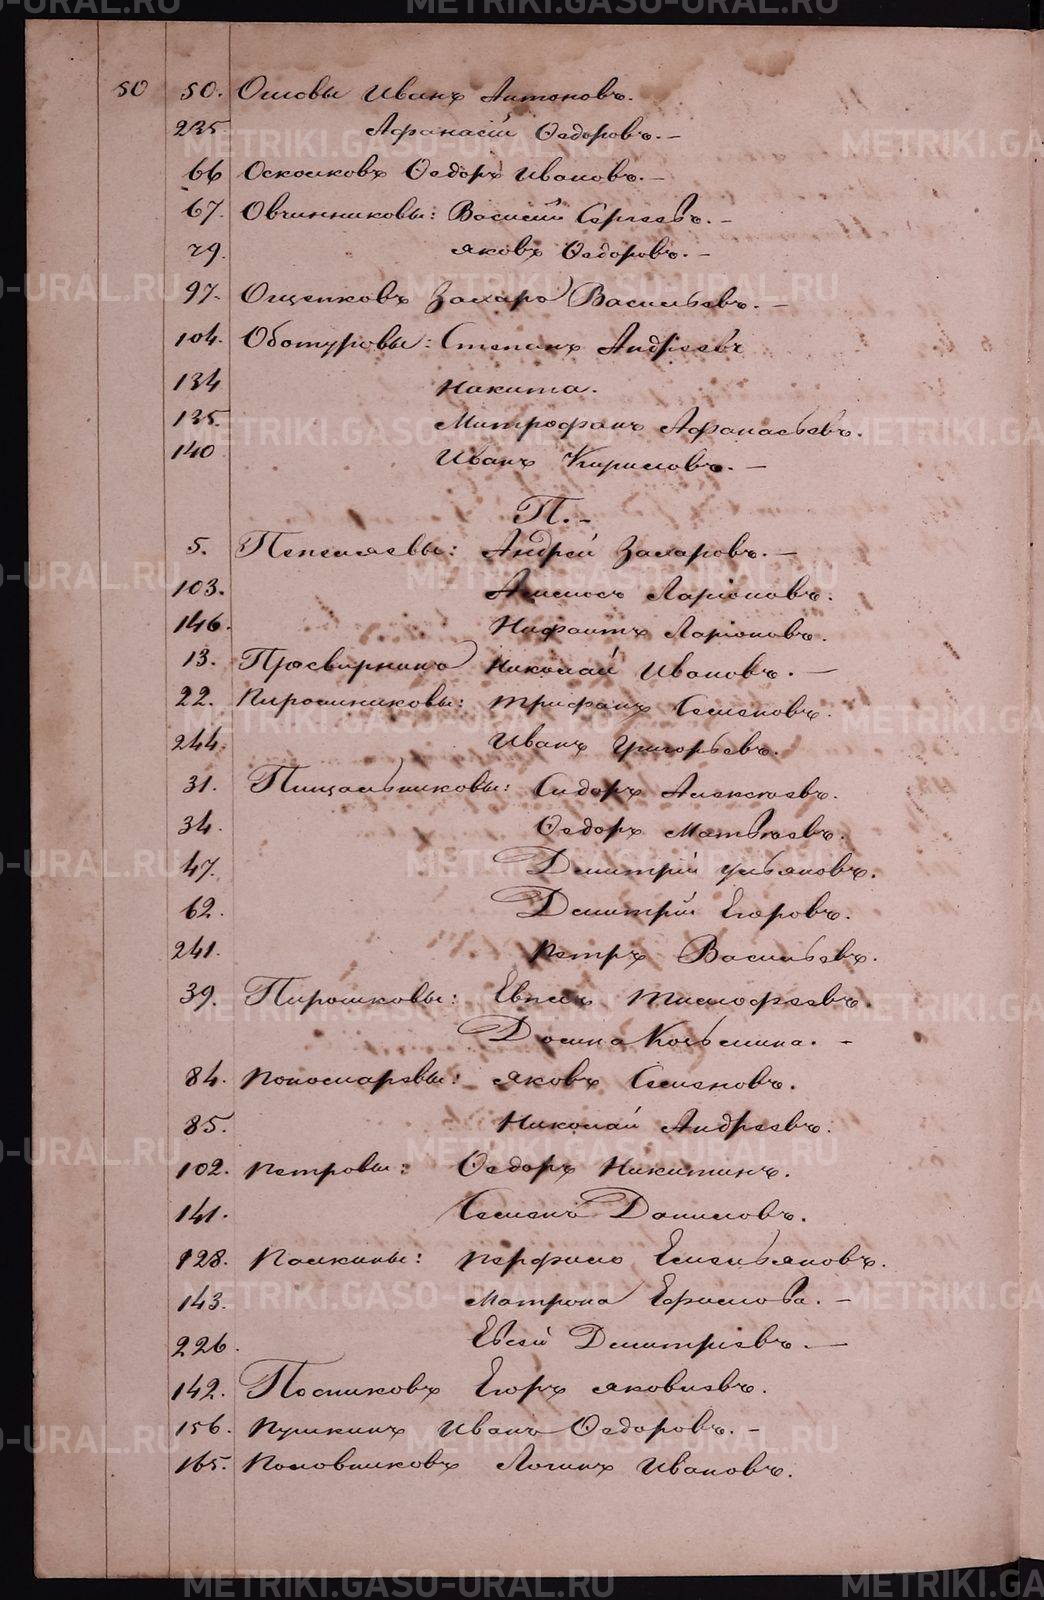 50 50. Осиовы Иванъ Антоновъ.
235 Афанасій Ѳедоровъ. -
66 Осколковъ Ѳедоръ Ивановъ. -
67. Овчинниковы: Василій Сергѣевъ. -
79. Яковъ Ѳедоровъ. -
97. Ощепковъ Захаръ Васильевъ. -
104. Обатуровы: Степанъ Андреевъ
134 Никита.
135. Митрофанъ Афанасьевъ.
140 Иванъ Кириловъ. -
П. -
5. Пепеляевы: Андрей Захаровъ. -
103. Амосъ Ларіоновъ.
146. Ларіоновъ.
13. Просвирнинъ Николай Ивановъ. -
22. Пирожниковы: Трифонъ Семеновъ.
244. Иванъ Григорьевъ.
31. Пищальниковы: Сидоръ Алексѣевъ.
34. Ѳедоръ Матвѣевъ.
47. Дмитрій Ульяновъ.
62. Дмитрій Егоровъ.
241. Петръ Васильевъ.
39. Пирошковы: Тимофеевъ.
Домна Козьмина. -
84. Пономаревы: Яковъ Семеновъ.
85. Николай Андреевъ.
102. Петровы: Ѳедоръ Никитинъ.
141. Семенъ Даниловъ.
128. Палкины: Перфилъ Емельяновъ.
143. Матрона Ефимова. -
226. Евсей Дмитріевъ. -
142. Посниковъ Егоръ Яковлевъ.
156. Пушкинъ Иванъ Ѳедоровъ. -
165. Половниковъ Логинъ Ивановъ.
METRIKI.GASO-URAL.RU